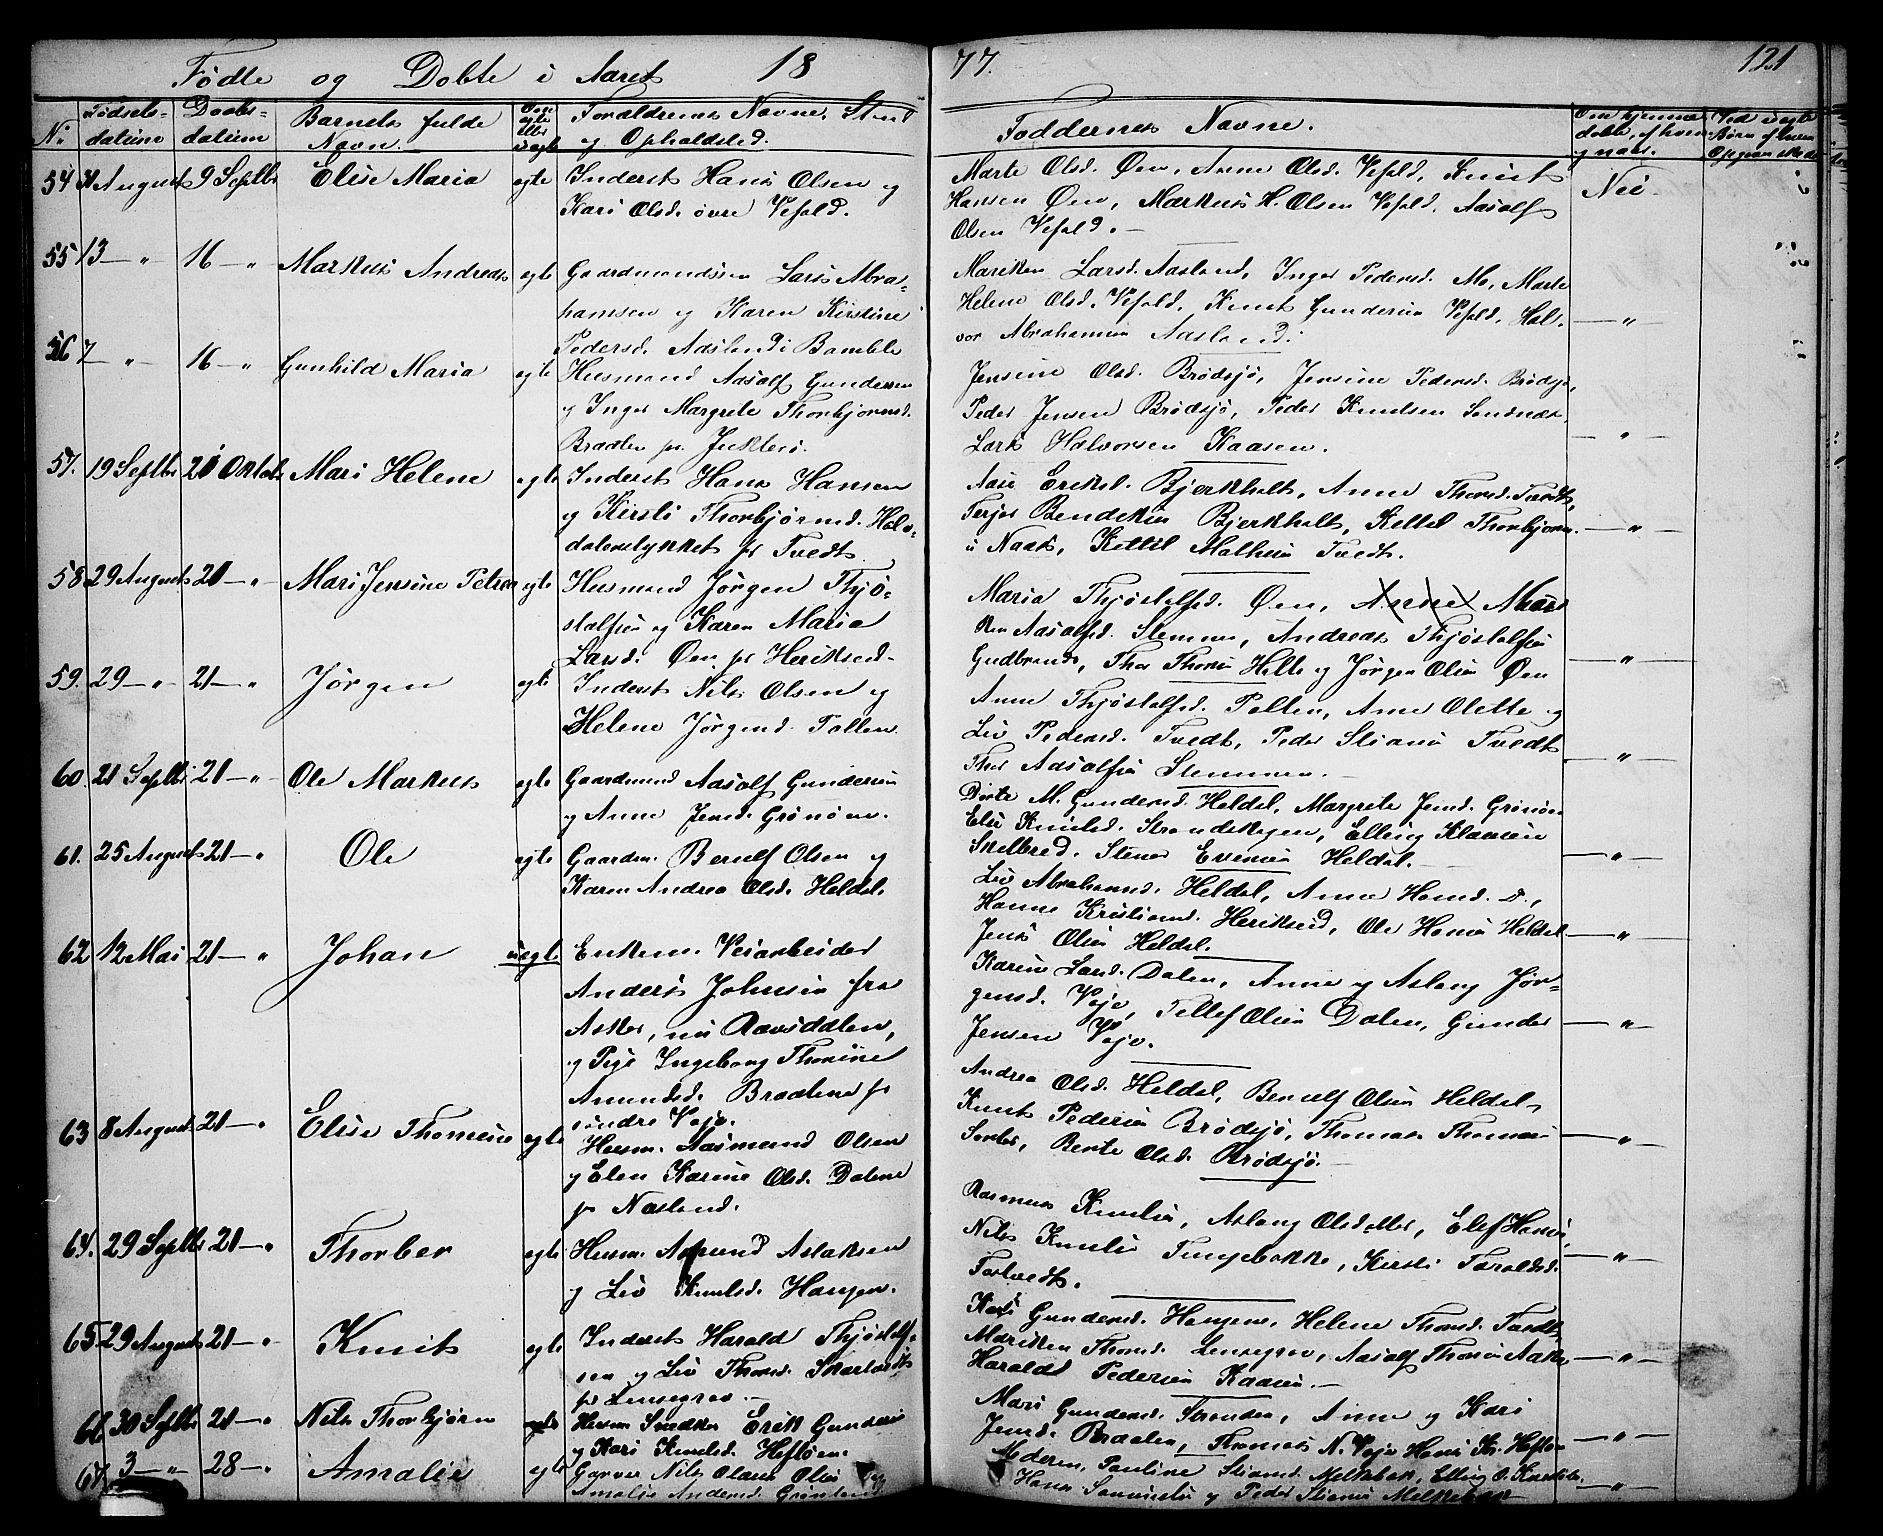 Fødte og Døbte i Aaret 18 77. 121
No Fødsels- datum Daabs- datum Barnets fulde Navn. Om egte eller uegte Forældrenes Navne, Stand og Opholdsted. Faddernes Navne. Om hjemme døbt, af hvem og naar.
54 August 9 Septbr Elise Maria egte Inderst Hans Olsen og
Kari Olsd. øvre Vefald.
Marte Olsd. Øen, Anne Olsd. Vefald, Knut
Hansen Øen, Markus H. Olsen Vefald, Aasolf
Olsen Vefald.
Nei
55 13 — " 16 — " Markus Andreas egte Gaardmandsøn Lars Abra-
hamsen og Karen Kirstine
Pedersd. Aasland i Bamble
Mariken Larsd. Aasland, Inger Pedersd. Mo, Marte
Helene Olsd. Vefald, Knut Gundersen Vefald, Hal-
vor Abrahamsen Aasland.
— " —
56 7 — " 16 — " Gunhild Maria egte Husmand Aasolf Gundersen
og Inger Margrete Thorbjørnsd.
Braaten
Jensine Olsd. Brødsjø, Jensine Pedersd. Brødsjø,
Peder Jensen Brødsjø, Peder Knutsen Sandnes,
Lars Halvorsen Kaasen.
— " —
57. 19 Septbr 21 Oktob Mari Helene egte Inderst Hans Hansen
og Kirsti Thorbjørnsd. Hal-
dalsstykket pr Tvedt
Aase Eriksd. Bjerkholt, Anne Thorsd. Tvedt,
Terjer Bendiksen Bjerkholt, Kettil Thorbjørn-
sen Naas, Kettil Mathisen Tvedt.
— " —
58 29 August 21 — " Mari Jensine Petrea egte Husmand Jørgen Thjø-
stolfsen og Karen Maria
Larsd. Øen pr Heriksend
Maria Thjøstolfsd. Øen, Anne Mari-
ken Aasolfsd. Stemmen, Andreas Thjøstolfsen
Gudbrands, Thor Thorsen Helle og Jørgen Olsen Øen
— " —
59. 29 — " 21 — " Jørgen egte Inderst Nils Olsen og
Helene Jørgensd. Polten.
Anne Thjøstolfsd. Polten, Anne Olette og
Liv Pedersd. Tvedt, Peder Stiansen Tvedt
Thor Aasolfsen Stemmen.
— " —
60. 21 Septbr 21 — " Ole Markus egte Gaardmand Aasolf Gundersen
og Anne Jensd. Grønøen.
Dorte M. Gundersd. Heldal, Margrete Jensd. Grønøen
Else Knutsd. Strandskogen, Elling Klausen
Skelbred. Stener Evensen Heldal.
— " —
61. 25 August 21 — " Ole egte Gaardm. Berulf Olsen og
Karen Andrea Olsd. Heldal.
Liv Abrahamsd. Heldal, Anne Hansd. do.,
Hanne Kristiansd. Heriksend, Ole Hansen Heldal
Jens Olsen Heldal.
— " —
62 12 Mai 21 — " Johan uegte Enkem. Veiarbeider
Anders Johnsen fra
Asker, nu Ravsdalen,
og Pige Ingeborg Thorine
Amundsd. Braatene pr
søndre Vaje.
Karine Larsd. Dalen, Anne og Aslaug Jør-
gensd. Vaje, Tellef Olsen Dalen, Gunder
Jensen Vaje.
— " —
63 8 August 21 — " Elise Thomine egte Husm. Aasmund Olsen
og Elen Karine Olsd. Dalene
pr Naasland.
Andrea Olsd. Heldal, Berulf Olsen Heldal
Knut Pedersen Brødsjø, Thomas Thomassen
Bente Olsd. Brødsjø.
— " —
64. 29 Septbr 21 — " Thorber egte Husm. Amund Aslaksen
og Liv Knutsd. Haugen.
Rasmus Knutsen, Aslaug Olsdatter, Elef Hansen,
Nils Knutsen Tungebakke, Kirsti Taraldsd.
— " —
65 29 August 21 — " Knut egte Inderst Harald Thjøstolf-
sen og Liv Thorsd.
pr Lensegrav.
Kari Gundersd. Haugene, Helene Thorsd. Tvedt,
Mariken Thorsd. Lensegrav, Aasolf Thorsen
Harald Pedersen Kaasen.
— " —
66 30 Septbr 21 — " Nils Thorbjørn egte Husm Snedker Erik Gundersen
og Kari Knutsd. Heftøen.
Mari Gundersd. Stranden, Anne og Kari
Jensd. Braaten, Thomas N. Vaje Hans Kr. Heftøen
— " —
67. 3 — " 28 — " Amalie egte Garver Nils Olaus Olsen
Amalie Andersd. Grønland
Moderen, Pauline Stiansd. Melkebak, Elling O.
Hans Samuelsen og Peder Stiansen Melkebak
— " —